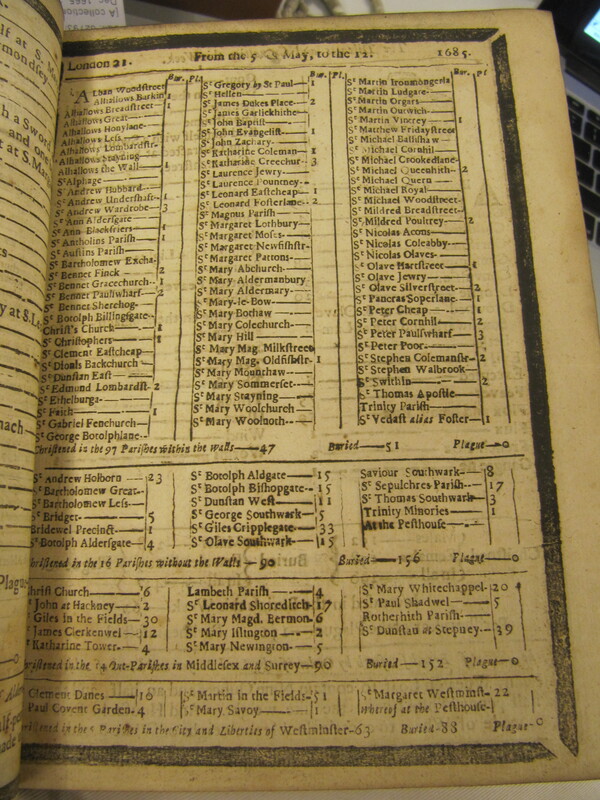 London 21.
From the 5 of May, to the 12.
1685.
Bur. Pl.
Alban Woodstreet
Alhallows Barkin 1
Alhallows Breadstreet 1
Alhallows Great
Alhallows Honylane
Alhallows Less
Alhallows Lombardstr-
Alhallows Stayning
Alhallows the Wall 1
St Alphage
St Andrew Hubbard
St Andrew Undershaft 1
St Andrew Wardrobe 3
St Ann Aldersgate
St Ann Blackfriers
St Antholins Parish 1
St Austins Parish
St Bartholomew Excha-
St Bennet Finck 2
St Bennet Gracechurch 1
St Bennet Paulswharf 2
St Bennet Sherehog
St Botolph Billingsgate
Christ's Church
St Christophers 1
St Clement Eastcheap
St Dionis Backchurch
St Dunstan East
St Edmund Lombardst- 2
St Ethelburga
St Faith 1
St Gabriel Fenchurch
St George Botolphlane
Bur. Pl.
St Gregory by St Paul 1
St Hellen
St James Dukes Place 2
St James Garlickhithe
St John Baptist
St John Evangelist 1
St John Zachary
St Katharine Coleman 1
St Katharine Creechur- 3
St Laurence Jewry
St Laurence Pountney
St Leonard Eastcheap 1
St Leonard Fosterlane 2
St Magnus Parish
St Margaret Lothbury
St Margaret Moses
St Margaret Newfishstr-
St Margaret Pattons
St Mary Abchurch
St Mary Aldermanbury
St Mary Aldermary
St Mary-le-Bow
St Mary Bothaw
St Mary Colechurch
St Mary Hill
St Mary Mag. Milkstreet
St Mary Mag. Oldfishstr- 1
St Mary Mounthaw
St Mary Sommerset
St Mary Stayning
St Mary Woolchurch
St Mary Woolnoth
Bur. Pl
St Martin Ironmongerla
St Martin Ludgate
St Martin Orgars
St Martin Outwich
St Martin Vintrey 1
St Matthew Fridaystreet
St Michael Bassishaw
St Michael Cornhil
St Michael Crookedlane
St Michael Queenhith 2
St Michael Quern
St Michael Royal
St Michael Woodstreet
St Mildred Breadstreet
St Mildred Poultrey 2
St Nicolas Acons
St Nicolas Coleabby
St Nicolas Olaves
St Olave Hartstreet
St Olave Jewry
St Olave Silverstreet 2
St Pancras Soperlane 1
St Peter Cheap 1
St Peter Cornhil 2
St Peter Paulswharf 3
St Peter Poor
St Stephen Colemanstr- 2
St Stephen Walbrook
St Swithin 2
St Thomas Apostle
Trinity Parish
St Vedast alias Foster 1
Christened in the 97 Parishes within the Walls 47 Buried 51 Plague 0
St Andrew Holborn 23
St Bartholomew Great
St Bartholomew Less
St Bridget 5
Bridewel Precinct 1
St Botolph Aldersgate 4
St Botolph Aldgate 15
St Botolph Bishopgate 15
St Dunstan West 11
St George Southwark 5
St Giles Cripplegate 33
St Olave Southwark 15
Saviour Southwark 8
St Sepulchres Parish 17
St Thomas Southwark 3
Trinity Minories 1
At the Pesthouse
Christened in the 16 Parishes without the Walls 90 Buried 156 Plague 0
Christ Church 6
John at Hackney 2
Giles in the Fields 30
James Clerkenwel 12
Katharine Tower 4
Lambeth Parish 4
St Leonard Shoreditch 17
St Mary Magd. Bermon. 6
St Mary Islington 2
St Mary Newington 5
St Mary Whitechappel 20
St Paul Shadwel 5
Rotherhith Parish
St Dunstan at Stepney 39
Christened in the 14 Out-Parishes in Middlesex and Surrey 90 Buried 152 Plague 0
Clement Danes 10
Paul Covent Garden 4
St Martin in the Fields 51
St Mary Savoy 1
St Margaret Westminst- 22
whereof at the Pesthouse
Christened in the 5 Parishes in the City and Liberties of Westminster 63 Buried 88 Plague 0